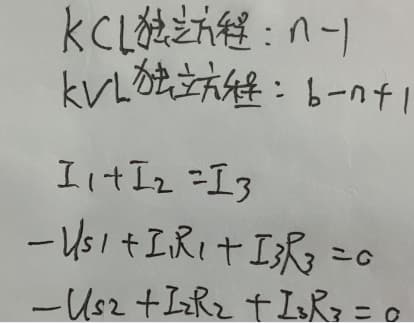 KCL独立方程：n-1
KVL独立方程：b-n+1
I₁+I₂=I₃
-Us1+I₁R₁+I₃R₃=0
-Us2+I₂R₂+I₃R₃=0